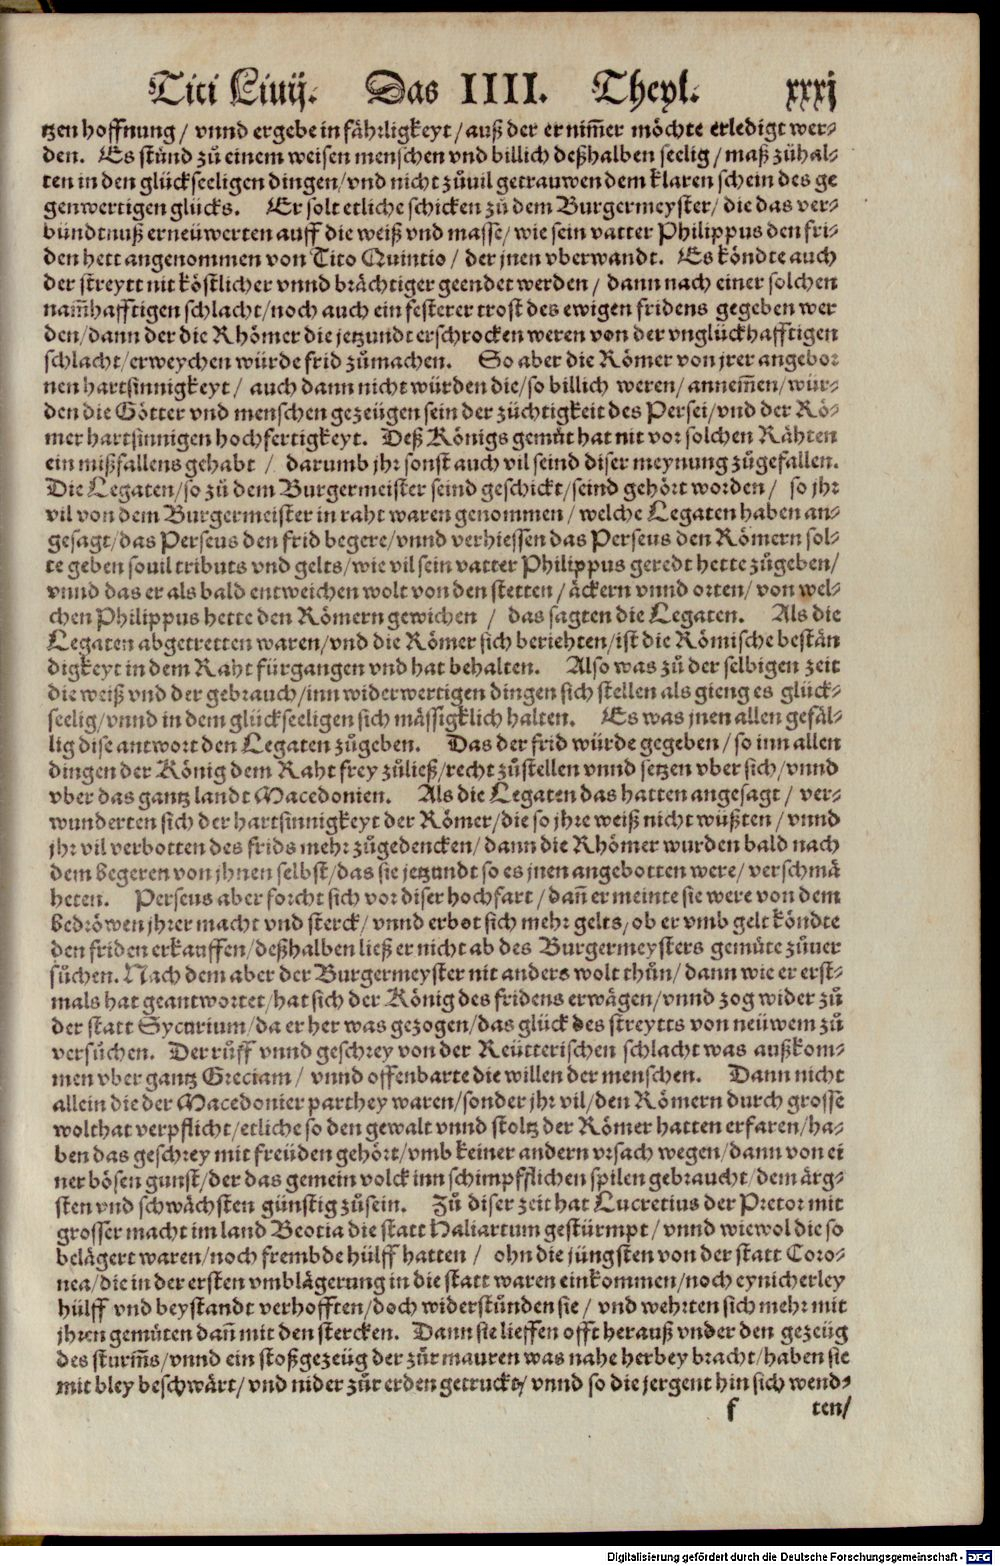 Titi Liuij. Das IIII. Theyl. xxxj
tzen hoffnung/ vnnd ergebe in fährligkeyt/auß der er nim̃er möchte erledigt wer-
den. Es stůnd zů einem weisen menschen vnd billich deßhalben seelig/maß zůhal-
ten in den glückseeligen dingen/vnd nicht zůuil getrauwen dem klaren schein des ge
genwertigen glücks. Er solt etliche schicken zů dem Burgermeyster/ die das ver-
bündtnuß erneüwerten auff die weiß vnd masse/ wie sein vatter Philippus den fri-
den hett angenommen von Tito Quintio/ der jnen vberwandt. Es köndte auch
der streytt nit köstlicher vnnd brächtiger geendet werden/ dann nach einer solchen
nam̃hafftigen schlacht/noch auch ein festerer trost des ewigen fridens gegeben wer
den/dann der die Rhömer die jetzundt erschrocken weren von der vnglückhafftigen
schlacht/erweychen würde frid zůmachen. So aber die Römer von jrer angebor
nen hartsinnigkeyt/ auch dann nicht würden die/so billich weren/annem̃en/wür-
den die Götter vnd menschen gezeügen sein der züchtigkeit des Persei/vnd der Rö-
mer hartsinnigen hochfertigkeyt. Deß Königs gemůt hat nit vor solchen Rähten
ein mißfallens gehabt / darumb jhr sonst auch vil seind diser meynung zůgefallen.
Die Legaten/so zů dem Burgermeister seind geschickt/seind gehört worden/ so jhr
vil von dem Burgermeister in raht waren genommen/welche Legaten haben an-
gesagt/das Perseus den frid begere/vnnd verhiessen das Perseus den Römern sol-
te geben souil tributs vnd gelts/wie vil sein vatter Philippus geredt hette zůgeben/
vnnd das er als bald entweichen wolt von den stetten/äckern vnnd orten/ von wel-
chen Philippus hette den Römern gewichen / das sagten die Legaten. Als die
Legaten abgetretten waren/vnd die Römer sich beriehten/ist die Römische bestän
digkeyt in dem Raht fürgangen vnd hat behalten. Also was zů der selbigen zeit
die weiß vnd der gebrauch/inn widerwertigen dingen sich stellen als gieng es glück-
seelig/vnnd in dem glückseeligen sich mässigklich halten. Es was jnen allen gefäl-
lig dise antwort den Legaten zůgeben. Das der frid würde gegeben/so inn allen
dingen der König dem Raht frey zůließ/recht zůstellen vnnd setzen vber sich/vnnd
vber das gantz landt Macedonien. Als die Legaten das hatten angesagt/ ver-
wunderten sich der hartsinnigkeyt der Römer/die so jhre weiß nicht wüßten/vnnd
jhr vil verbotten des frids mehr zůgedencken/dann die Rhömer wurden bald nach
dem begeren von jhnen selbst/das sie jetzundt so es jnen angebotten were/verschmä
heten. Perseus aber forcht sich vor diser hochfart/ dañ er meinte sie were von dem
bedröwen jhrer macht vnd sterck/vnnd erbot sich mehr gelts/ob er vmb gelt köndte
den friden erkauffen/deßhalben ließ er nicht ab des Burgermeysters gemüte zůuer
sůchen. Nach dem aber der Burgermeyster nit anders wolt thůn/ dann wie er erst-
mals hat geantwortet/hat sich der König des fridens erwägen/vnnd zog wider zů
der statt Sycurium/da er her was gezogen/das glück des streytts von neüwem zů
versůchen. Der rüff vnnd geschrey von der Reütterischen schlacht was außkom-
men vber gantz Greciam/ vnnd offenbarte die willen der menschen. Dann nicht
allein die der Macedonier parthey waren/sonder jhr vil/den Römern durch grosse
wolthat verpflicht/etliche so den gewalt vnnd stoltz der Römer hatten erfaren/ha-
ben das geschrey mit freüden gehört/vmb keiner andern vrsach wegen/dann von ei
ner bösen gunst/der das gemein volck inn schimpfflichen spilen gebraucht/dem ärg-
sten vnd schwächsten günstig zůsein. Zů diser zeit hat Lucretius der Pretor mit
grosser macht im land Beotia die statt Haliartum gestürmpt/ vnnd wiewol die so
belägert waren/noch frembde hülff hatten/ ohn die jüngsten von der statt Coro-
nea/die in der ersten vmblägerung in die statt waren einkommen/noch eynicherley
hülff vnd beystandt verhofften/doch widerstůnden sie/ vnd wehrten sich mehr mit
jhren gemüten dañ mit den stercken. Dann sie lieffen offt herauß vnder den gezeüg
des sturm̃s/vnnd ein stoßgezeüg der zůr mauren was nahe herbey bracht/haben sie
mit bley beschwärt/vnd nider zůr erden getruckt/vnnd so die jergent hin sich wend-
f ten/
Digitalisierung gefördert durch die Deutsche Forschungsgemeinschaft - DFG